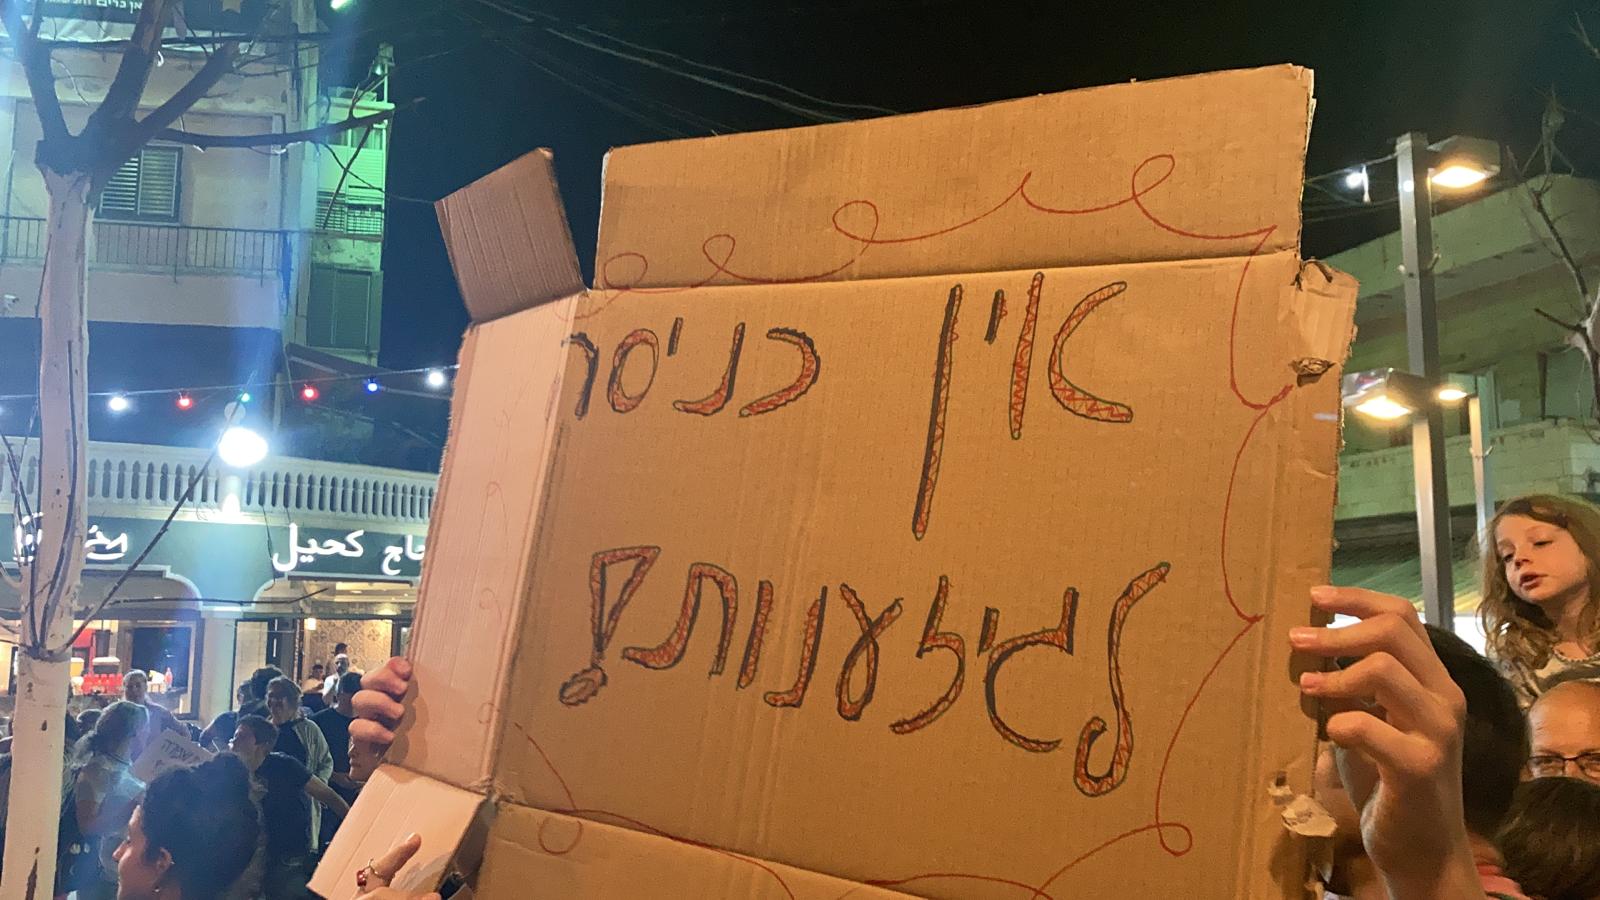 אין כניסה
לגיזענות!
حاج كحيل